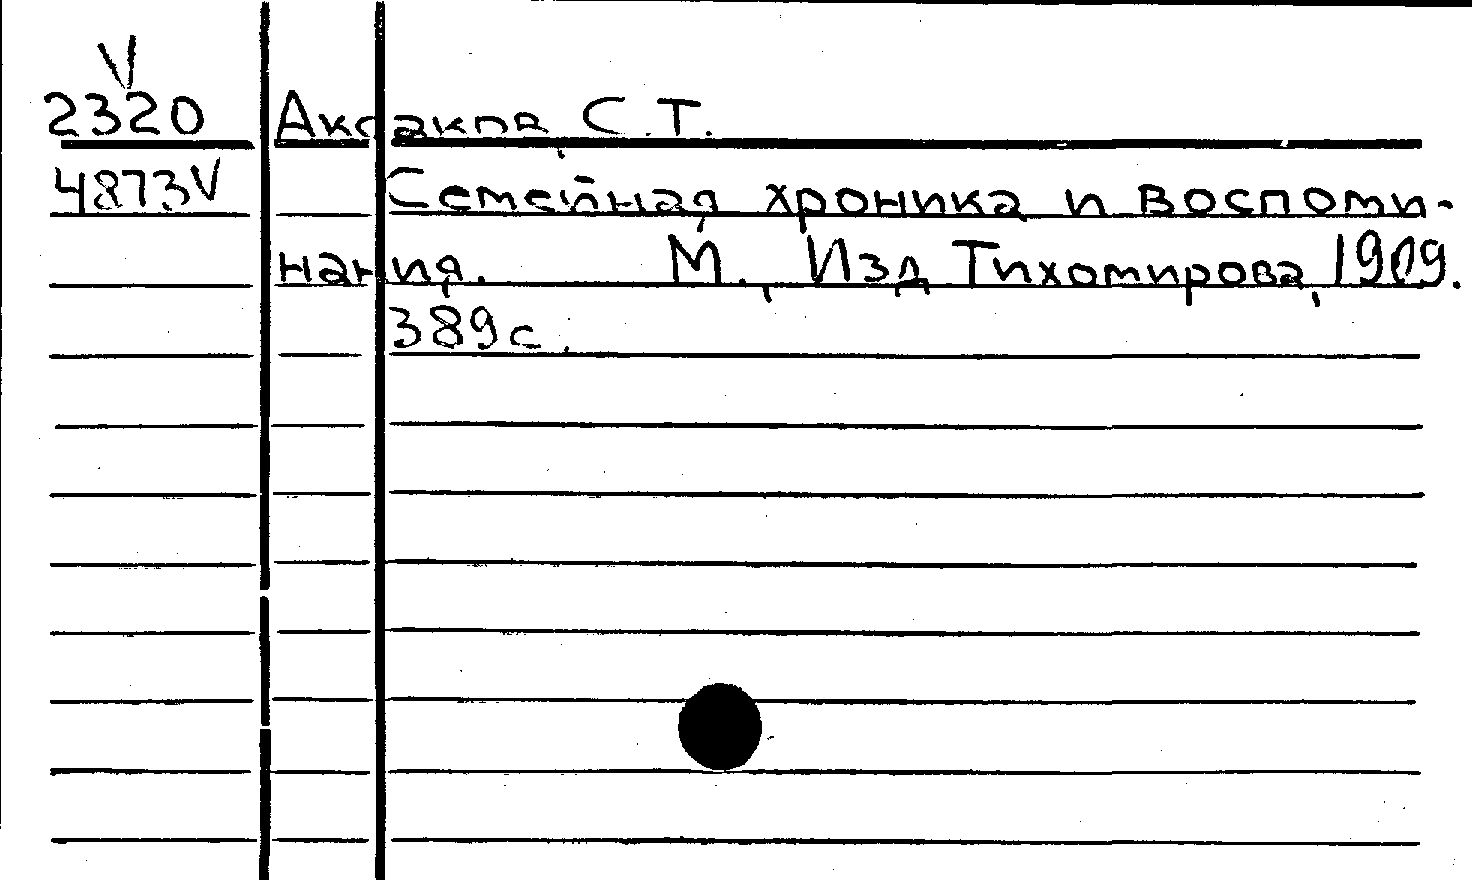 V
2320 Аксаков, С.Т.
4873V Семейная хроника и воспоми-
нания. М., Изд Тихомирова, 1909.
389с.